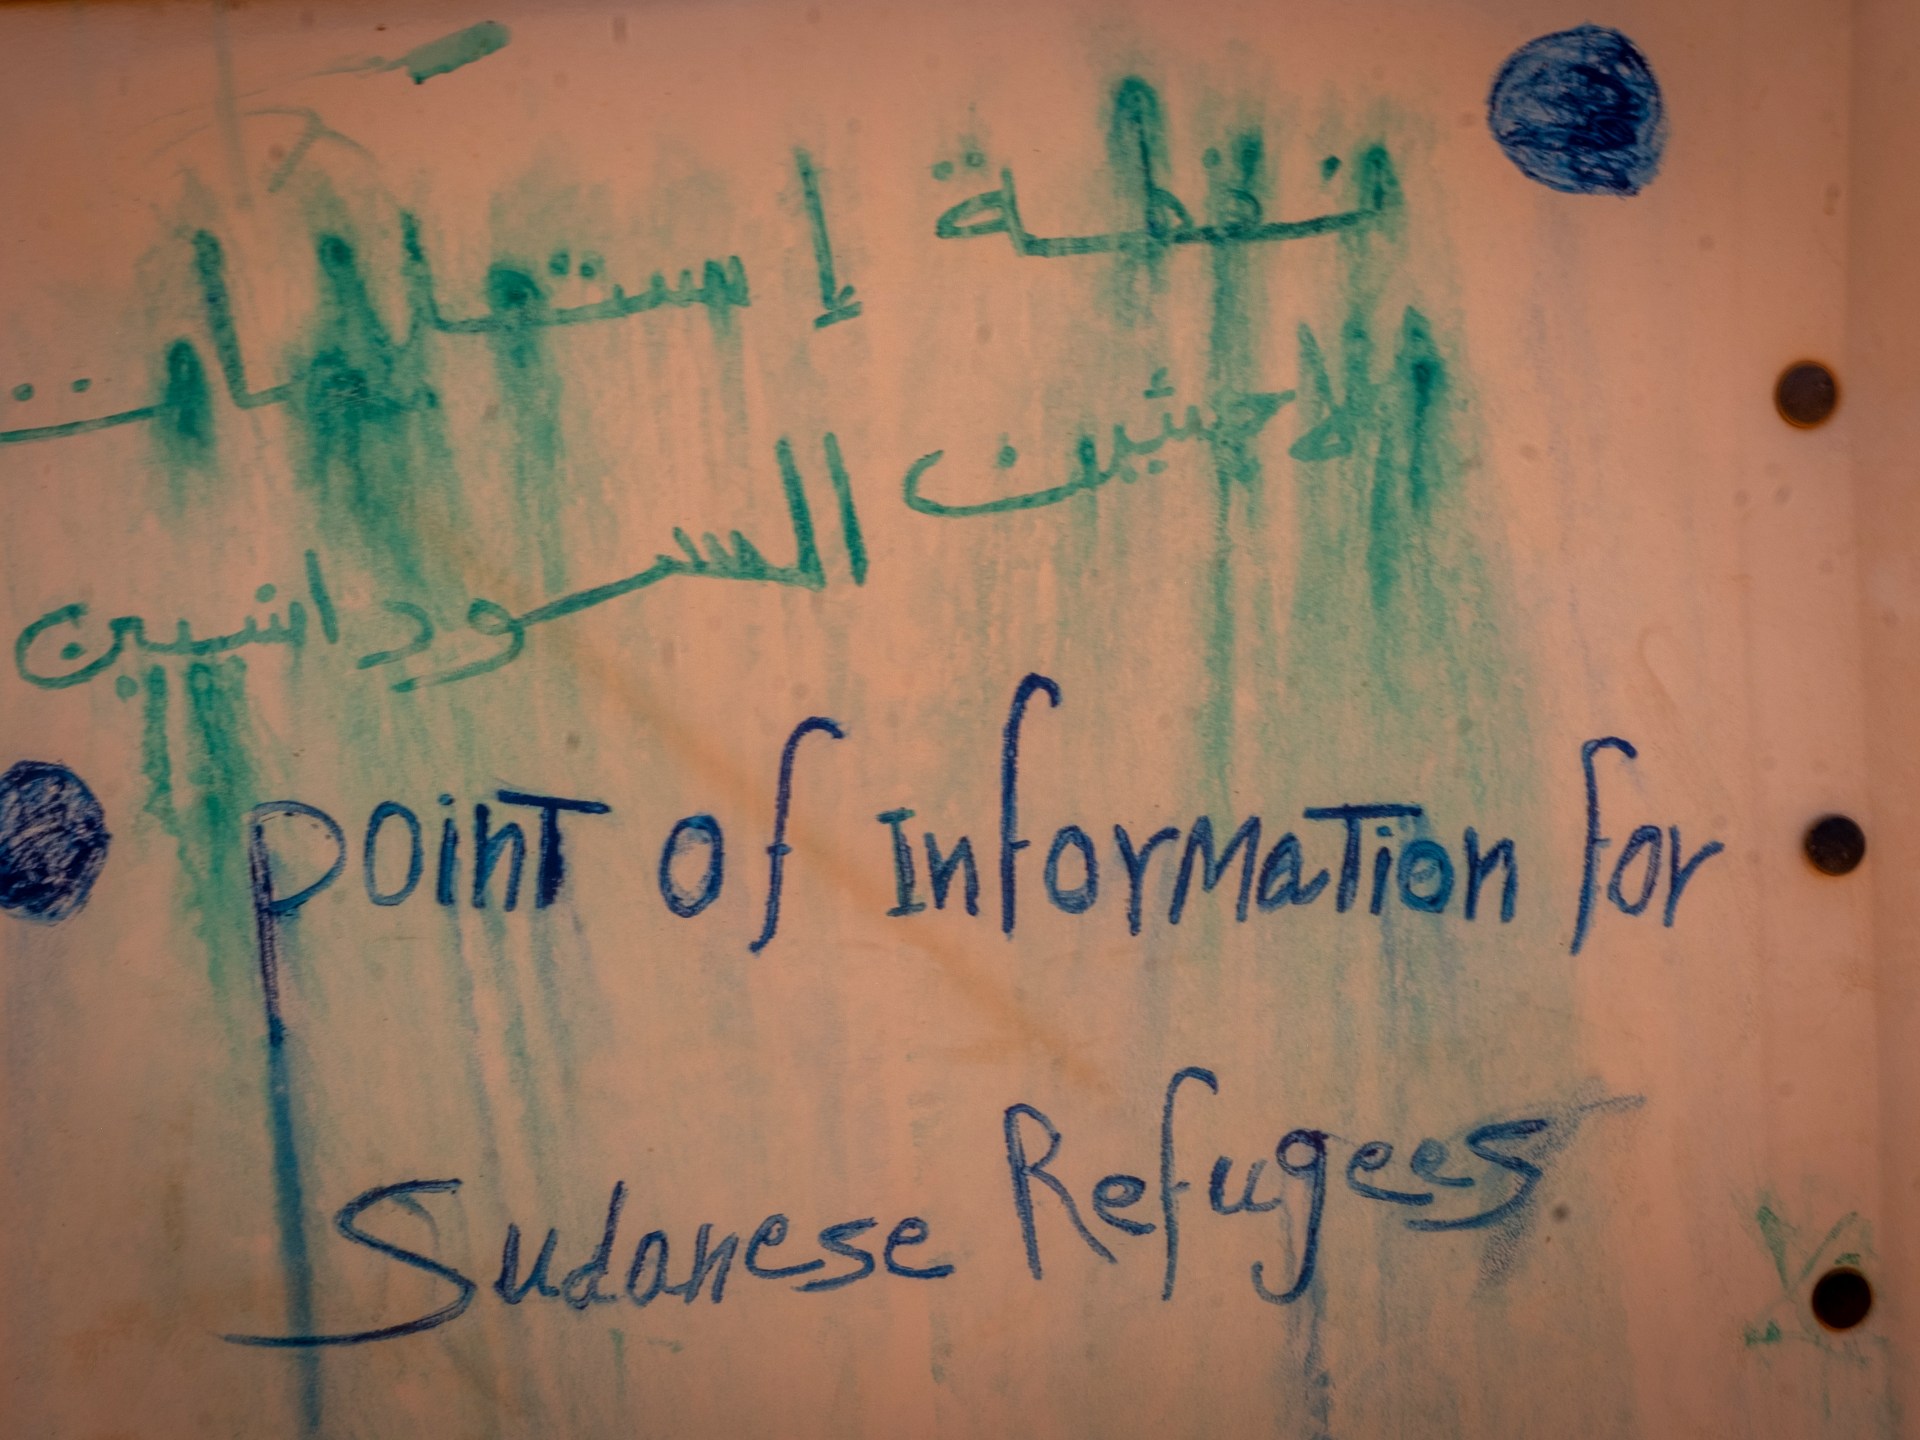 نقطة إستعلامات
الاجئين السودانين
point of Information for
Sudanese Refugees